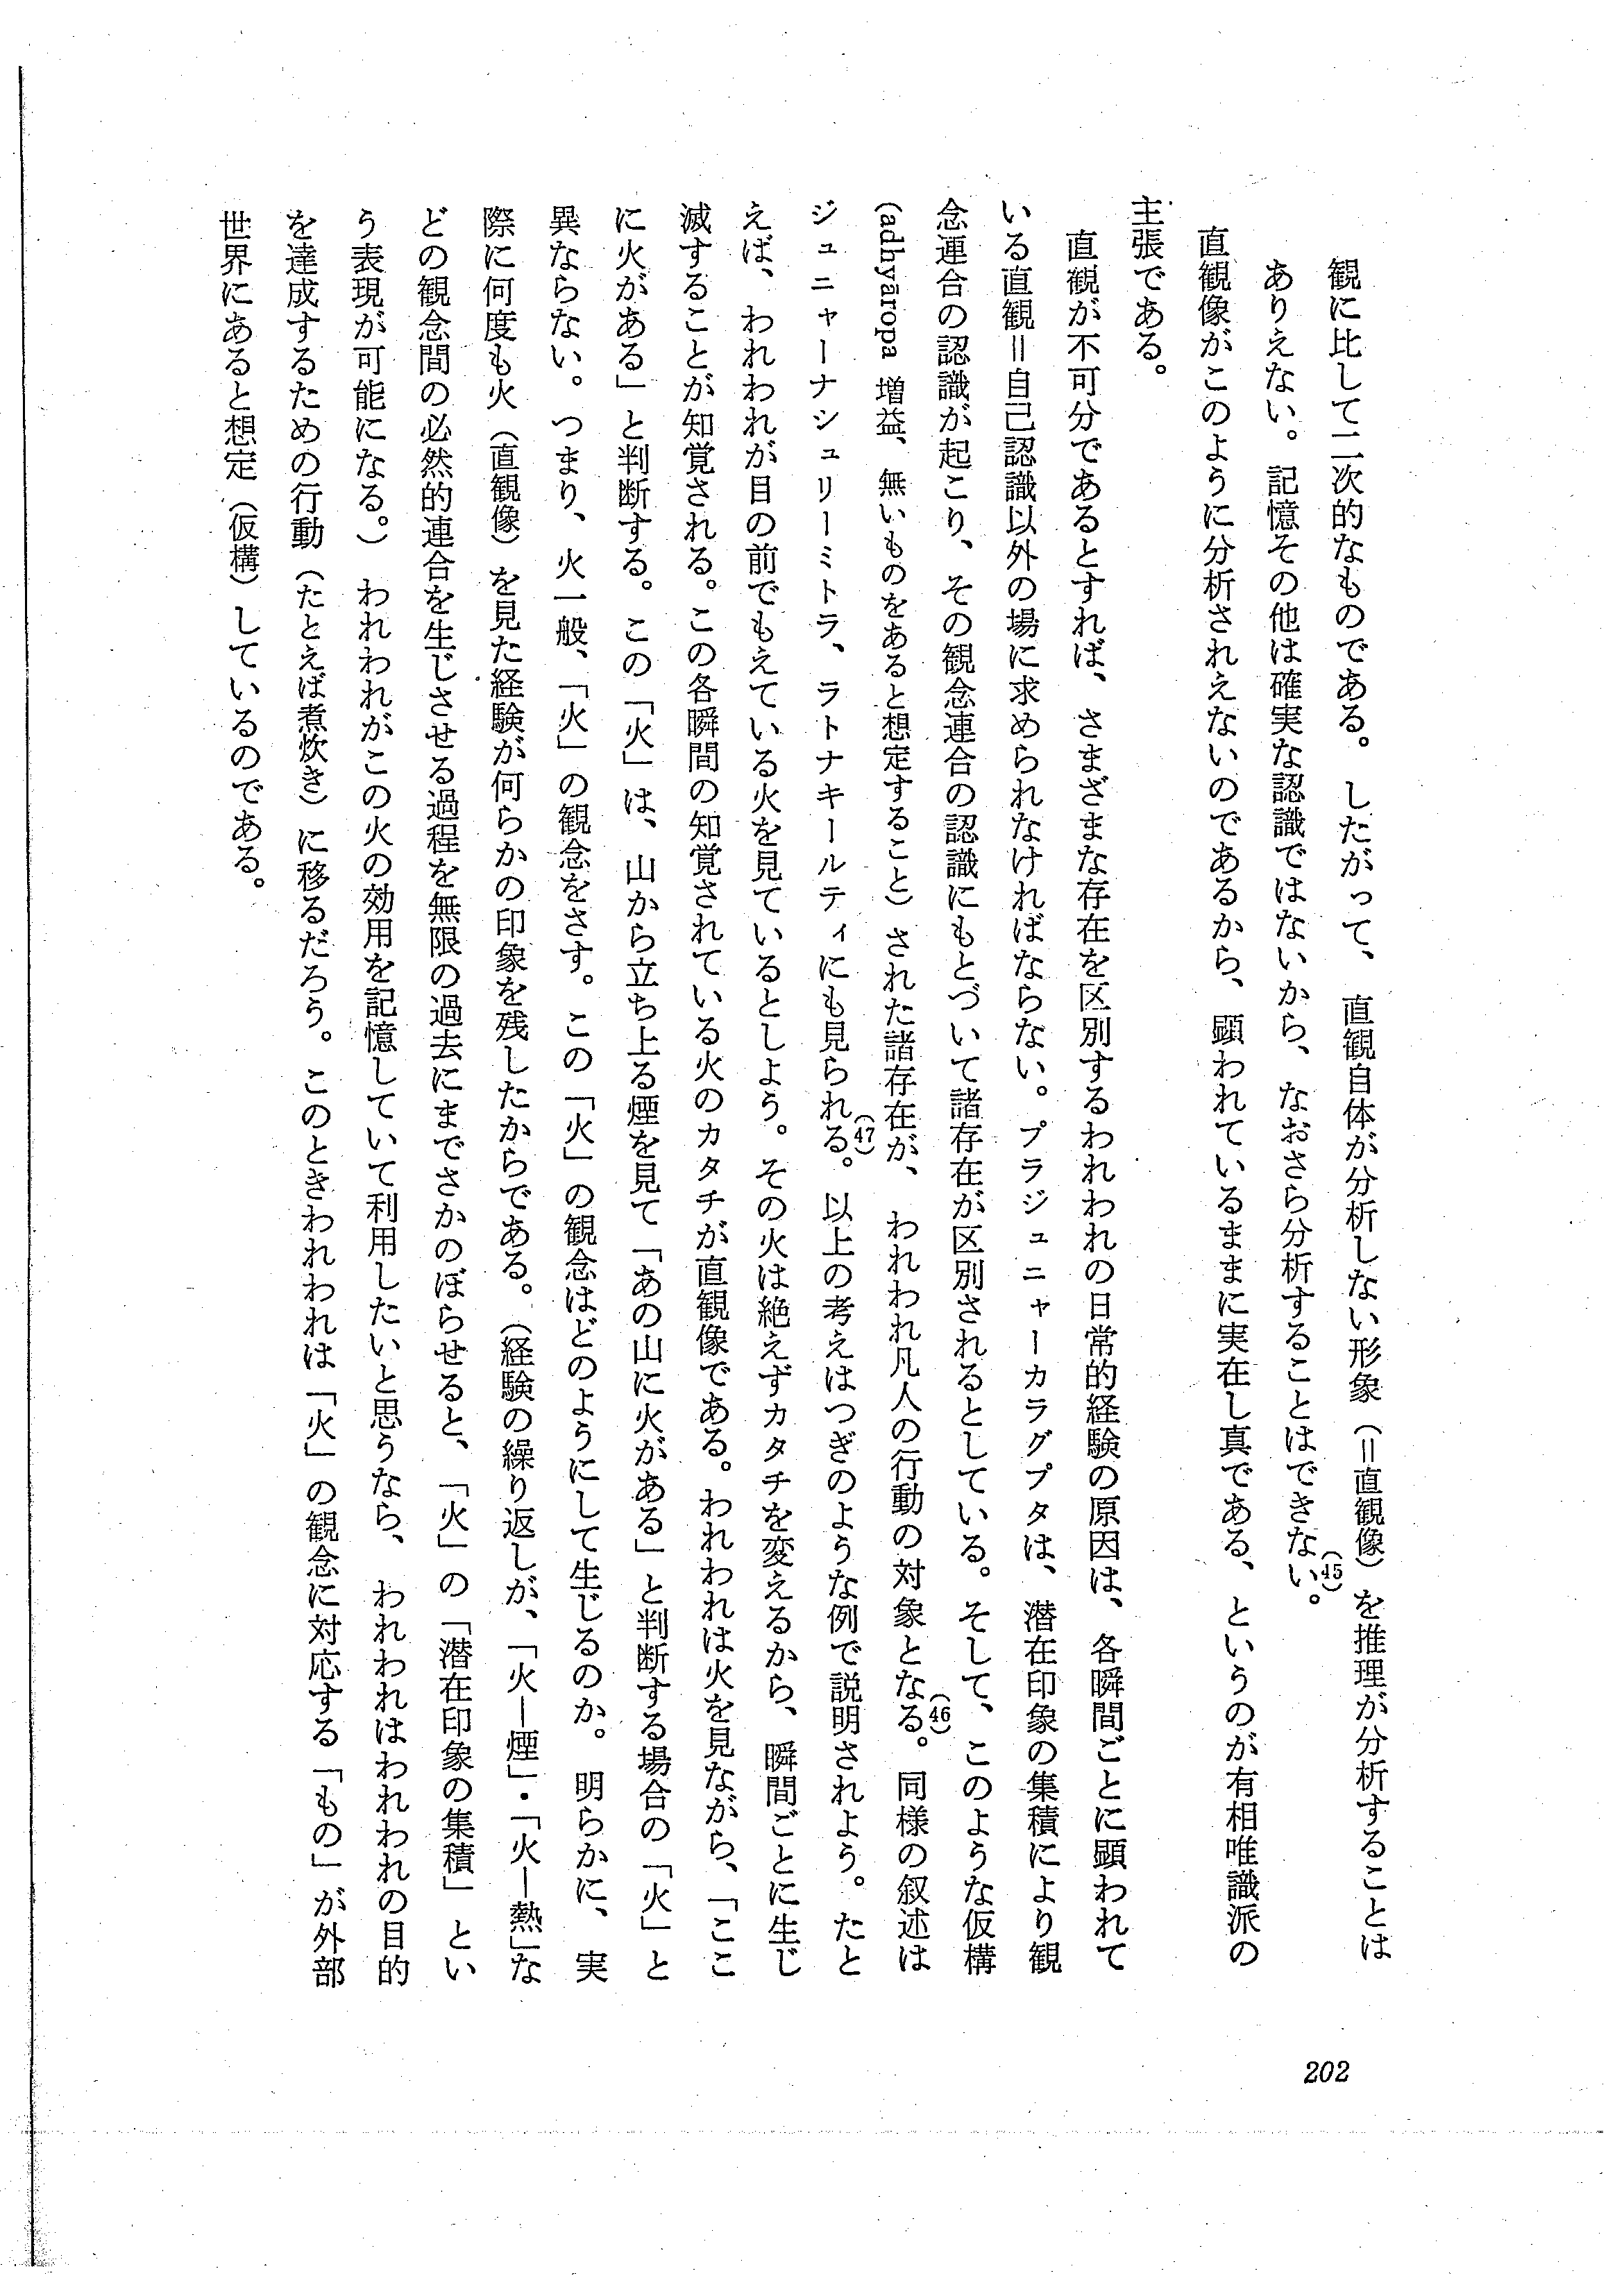 観に比して二次的なものである。したがって、直観自体が分析しない形象（＝直観像）を推理が分析することは
ありえない。記憶その他は確実な認識ではないから、なおさら分析することはできない(45)。
直観像がこのように分析されえないのであるから、顕われているままに実在し真である、というのが有相唯識派の
主張である。
直観が不可分であるとすれば、さまざまな存在を区別するわれわれの日常的経験の原因は、各瞬間ごとに顕われて
いる直観＝自己認識以外の場に求められなければならない。プラジュニャーカラグプタは、潜在印象の集積により観
念連合の認識が起こり、その観念連合の認識にもとづいて諸存在が区別されるとしている。そして、このような仮構
（adhyāropa 増益、無いものをあると想定すること）された諸存在が、われわれ凡人の行動の対象となる(46)。同様の叙述は
ジュニャーナシュリーミトラ、ラトナキールティにも見られる(47)。以上の考えはつぎのような例で説明されよう。たと
えば、われわれが目の前でもえている火を見ているとしよう。その火は絶えずカタチを変えるから、瞬間ごとに生じ
滅することが知覚される。この各瞬間の知覚されている火のカタチが直観像である。われわれは火を見ながら、「ここ
に火がある」と判断する。この「火」は、山から立ち上る煙を見て「あの山に火がある」と判断する場合の「火」と
異ならない。つまり、火一般、「火」の観念をさす。この「火」の観念はどのようにして生じるのか。明らかに、実
際に何度も火（直観像）を見た経験が何らかの印象を残したからである。（経験の繰り返しが、「火―煙」・「火―熱」な
どの観念間の必然的連合を生じさせる過程を無限の過去にまでさかのぼらせると、「火」の「潜在印象の集積」とい
う表現が可能になる。）われわれがこの火の効用を記憶していて利用したいと思うなら、われわれはわれわれの目的
を達成するための行動（たとえば煮炊き）に移るだろう。このときわれわれは「火」の観念に対応する「もの」が外部
世界にあると想定（仮構）しているのである。
202